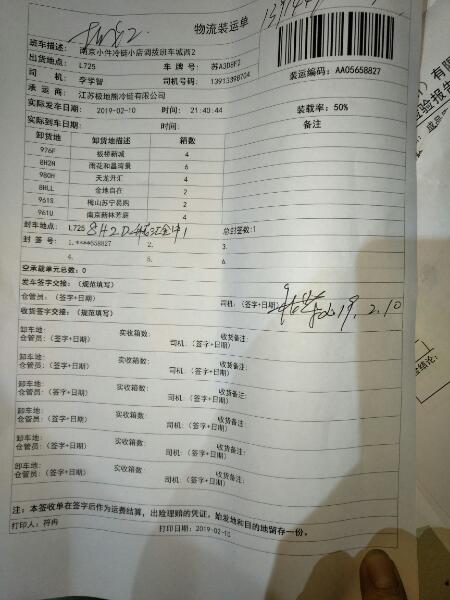 物流装运单
班车描述: 南京小件冷链小店调拨班车城西2
出货地点: L725 车 牌 号: 苏A3D8F2
司 机: 李学智 司机号码: 13913398704
承 运 商: 江苏极地熊冷链有限公司
装运编码: AA05658827
实际发车日期: 2019-02-10 时间: 21:40:44 装载率: 50%
实际到车日期: 时间: 备注
卸货地 卸货地描述 箱数
976F 板桥新城 4
8H2H 雨花和昌湾景 6
980H 天龙升汇 4
8HLL 金地自在 2
961S 梅山苏宁易购 2
961U 南京新林芳庭 4
封车地点: L725 8H2D 总封签数:1
封 签 号: 1.****658827 2. 3.
4. 5. 6.
空承载单元总数: 0
发车签字交接: (规范填写)
仓管员: (签字+日期) 司机: (签字+日期) 19.2.10
收货签字交接: (规范填写)
卸车地: 实收箱数: 收货备注:
仓管员: (签字+日期) 司机: (签字+日期)
卸车地: 实收箱数: 收货备注:
仓管员: (签字+日期) 司机: (签字+日期)
卸车地: 实收箱数: 收货备注:
仓管员: (签字+日期) 司机: (签字+日期)
卸车地: 实收箱数: 收货备注:
仓管员: (签字+日期) 司机: (签字+日期)
卸车地: 实收箱数: 收货备注:
仓管员: (签字+日期) 司机: (签字+日期)
卸车地: 实收箱数: 收货备注:
仓管员: (签字+日期) 司机: (签字+日期)
注: 本签收单在签字后作为运费结算, 出险理赔的凭证, 始发地和目的地留存一份。
打印人: 符冉 打印日期: 2019-02-10
有限
检验报告
成品
结论: